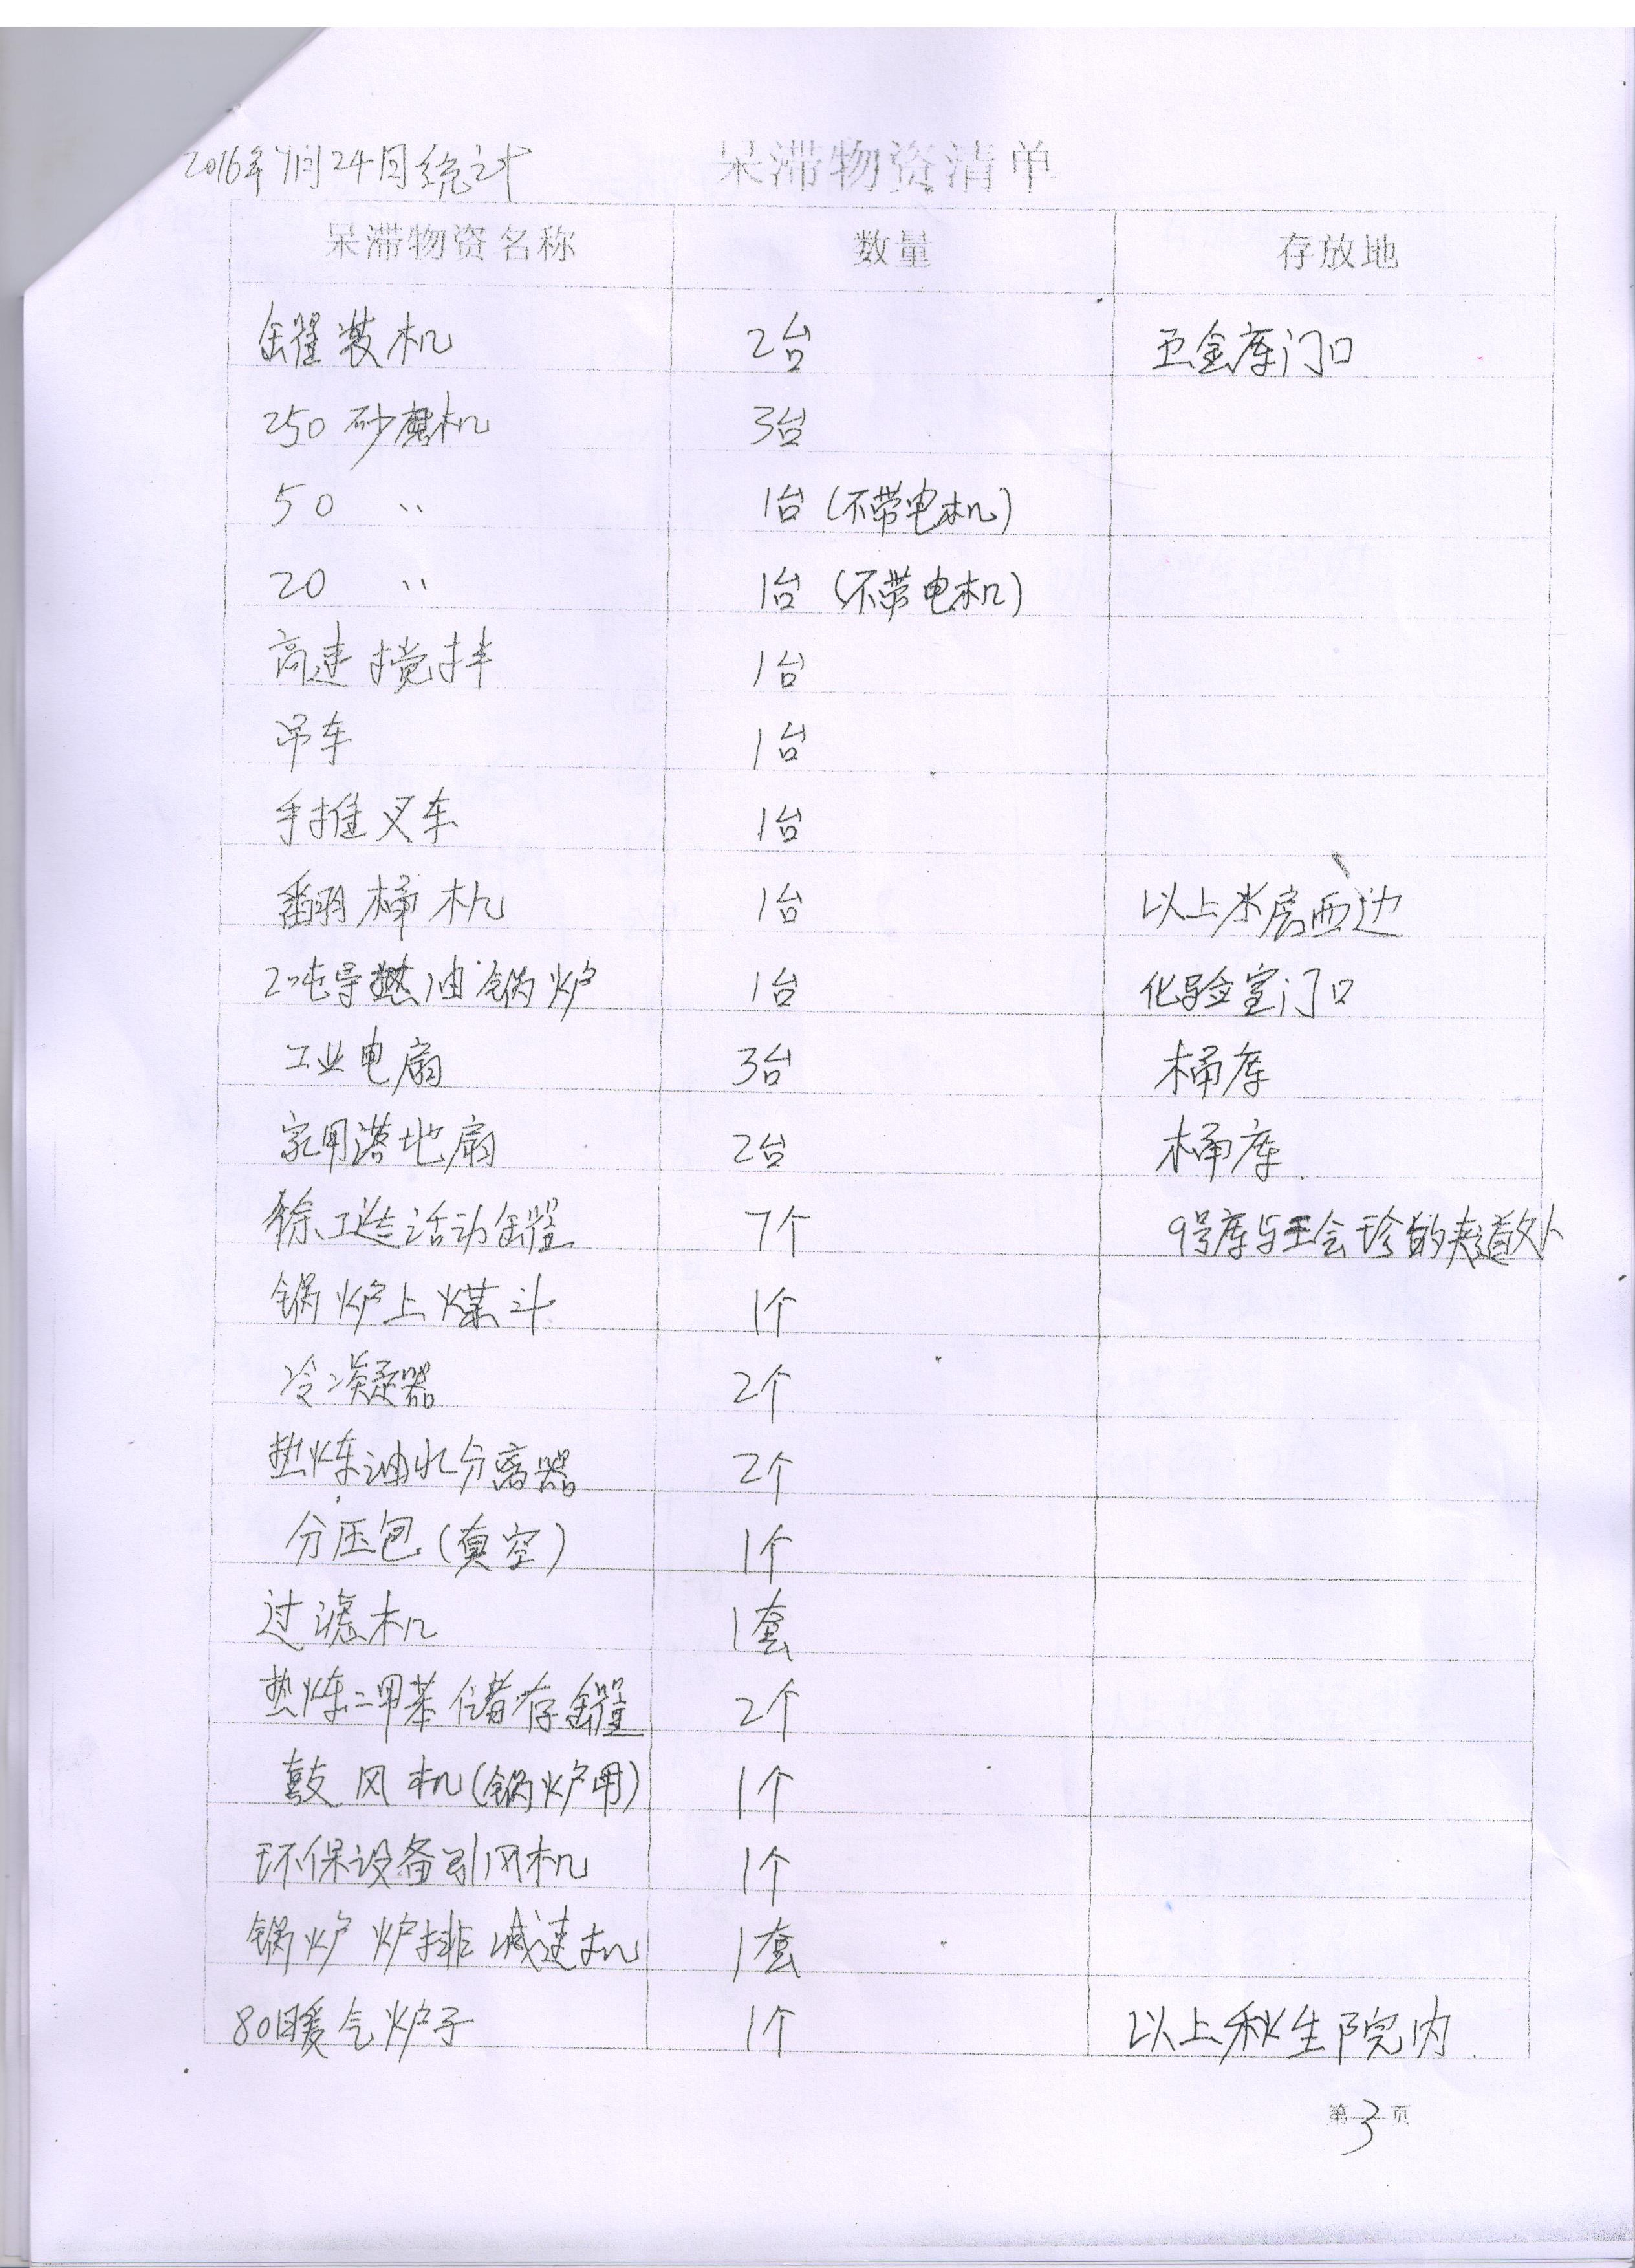 2016年7月24日统计 呆滞物资清单
呆滞物资名称 数量 存放地
罐装机 2台 五金库门口
250砂磨机 3台
50 〃 1台(不带电机)
20 〃 1台(不带电机)
高速搅拌 1台
吊车 1台
手推叉车 1台
翻桶机 1台 以上水房西边
2吨导热油锅炉 1台 化验室门口
工业电扇 3台 桶库
家用落地扇 2台 桶库
徐工送活动罐 7个 9号库与王会珍的夹道处
锅炉上煤斗 1个
冷凝器 2个
热炼油水分离器 2个
分压包(真空) 1个
过滤机 1套
热炼二甲苯储存罐 2个
鼓风机(锅炉用) 1个
环保设备引风机 1个
锅炉炉排减速机 1套
80暖气炉子 1个 以上秋生院内
第3页